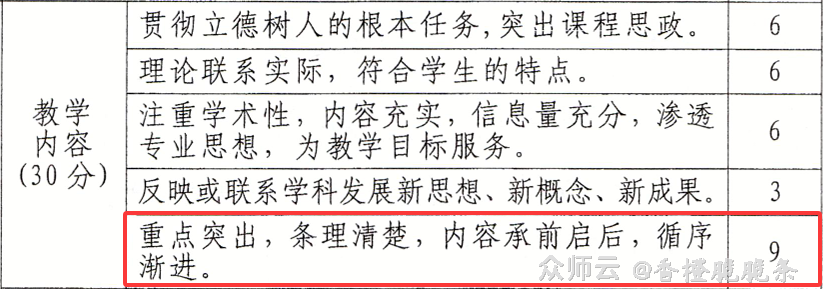 贯彻立德树人的根本任务,突出课程思政。 6
理论联系实际，符合学生的特点。 6
教学
内容
(30分)
注重学术性，内容充实，信息量充分，渗透
专业思想，为教学目标服务。 6
反映或联系学科发展新思想、新概念、新成果。 3
重点突出，条理清楚，内容承前启后，循序
渐进。 9
众师云 @香搂脆脆条